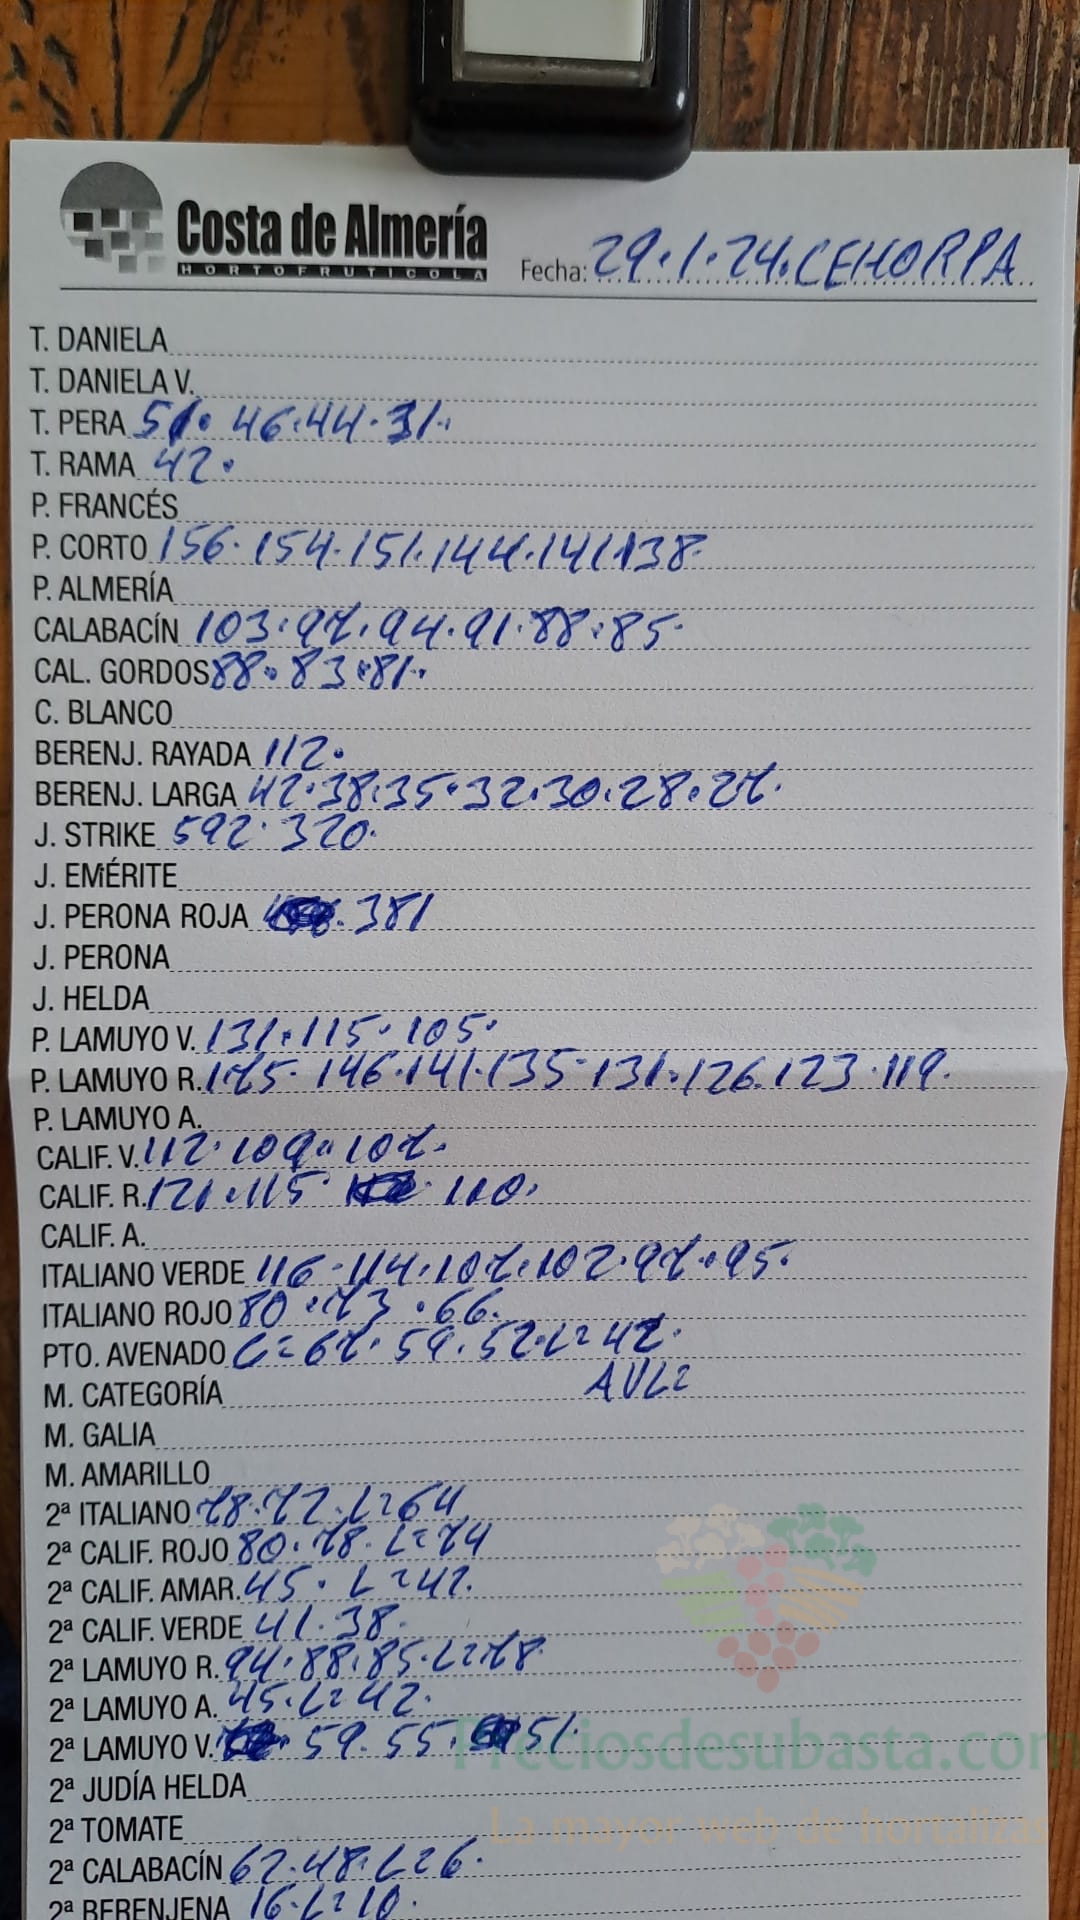 Costa de Almería
HORTOFRUTICOLA
Fecha: 29.1.24.CEHORPA
T. DANIELA
T. DANIELA V.
T. PERA 51. 46.44.31.
T. RAMA 42.
P. FRANCÉS
P. CORTO 156.154.151.144.141.138
P. ALMERÍA
CALABACÍN 103.97.94.91.88.85.
CAL. GORDOS 88.83.81.
C. BLANCO
BERENJ. RAYADA 112.
BERENJ. LARGA 42.38.35.32.30.28.27.
J. STRIKE 592.320.
J. EMÉRITE
J. PERONA ROJA 381
J. PERONA
J. HELDA
P. LAMUYO V. 131.115.105.
P. LAMUYO R. 175.146.141.135.131.126.123.119.
P. LAMUYO A.
CALIF. V. 112.109.107.
CALIF. R. 121.115. 110.
CALIF. A.
ITALIANO VERDE 116.114.107.102.97.95.
ITALIANO ROJO 80.73.66.
PTO. AVENADO C=67.59.52.L=42.
M. CATEGORÍA
M. GALIA
M. AMARILLO
2ª ITALIANO 78.72.L=64
2ª CALIF. ROJO 80.78.L=74
2ª CALIF. AMAR. 45. L=42.
2ª CALIF. VERDE 41.38.
2ª LAMUYO R. 94.88.85.L=78
2ª LAMUYO A. 45.L=42.
2ª LAMUYO V. 59.55. 51.
2ª JUDÍA HELDA
2ª TOMATE
2ª CALABACÍN 62.48.L=6.
2ª BERENJENA 16.L=10.
Preciosdesubasta.com
La mayor web de hortalizas